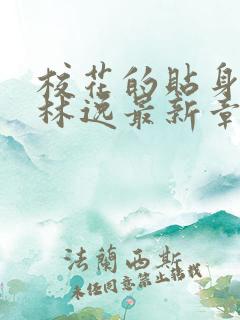 校花的贴身
林逸最新章
法蘭西斯
未经同意禁止转载